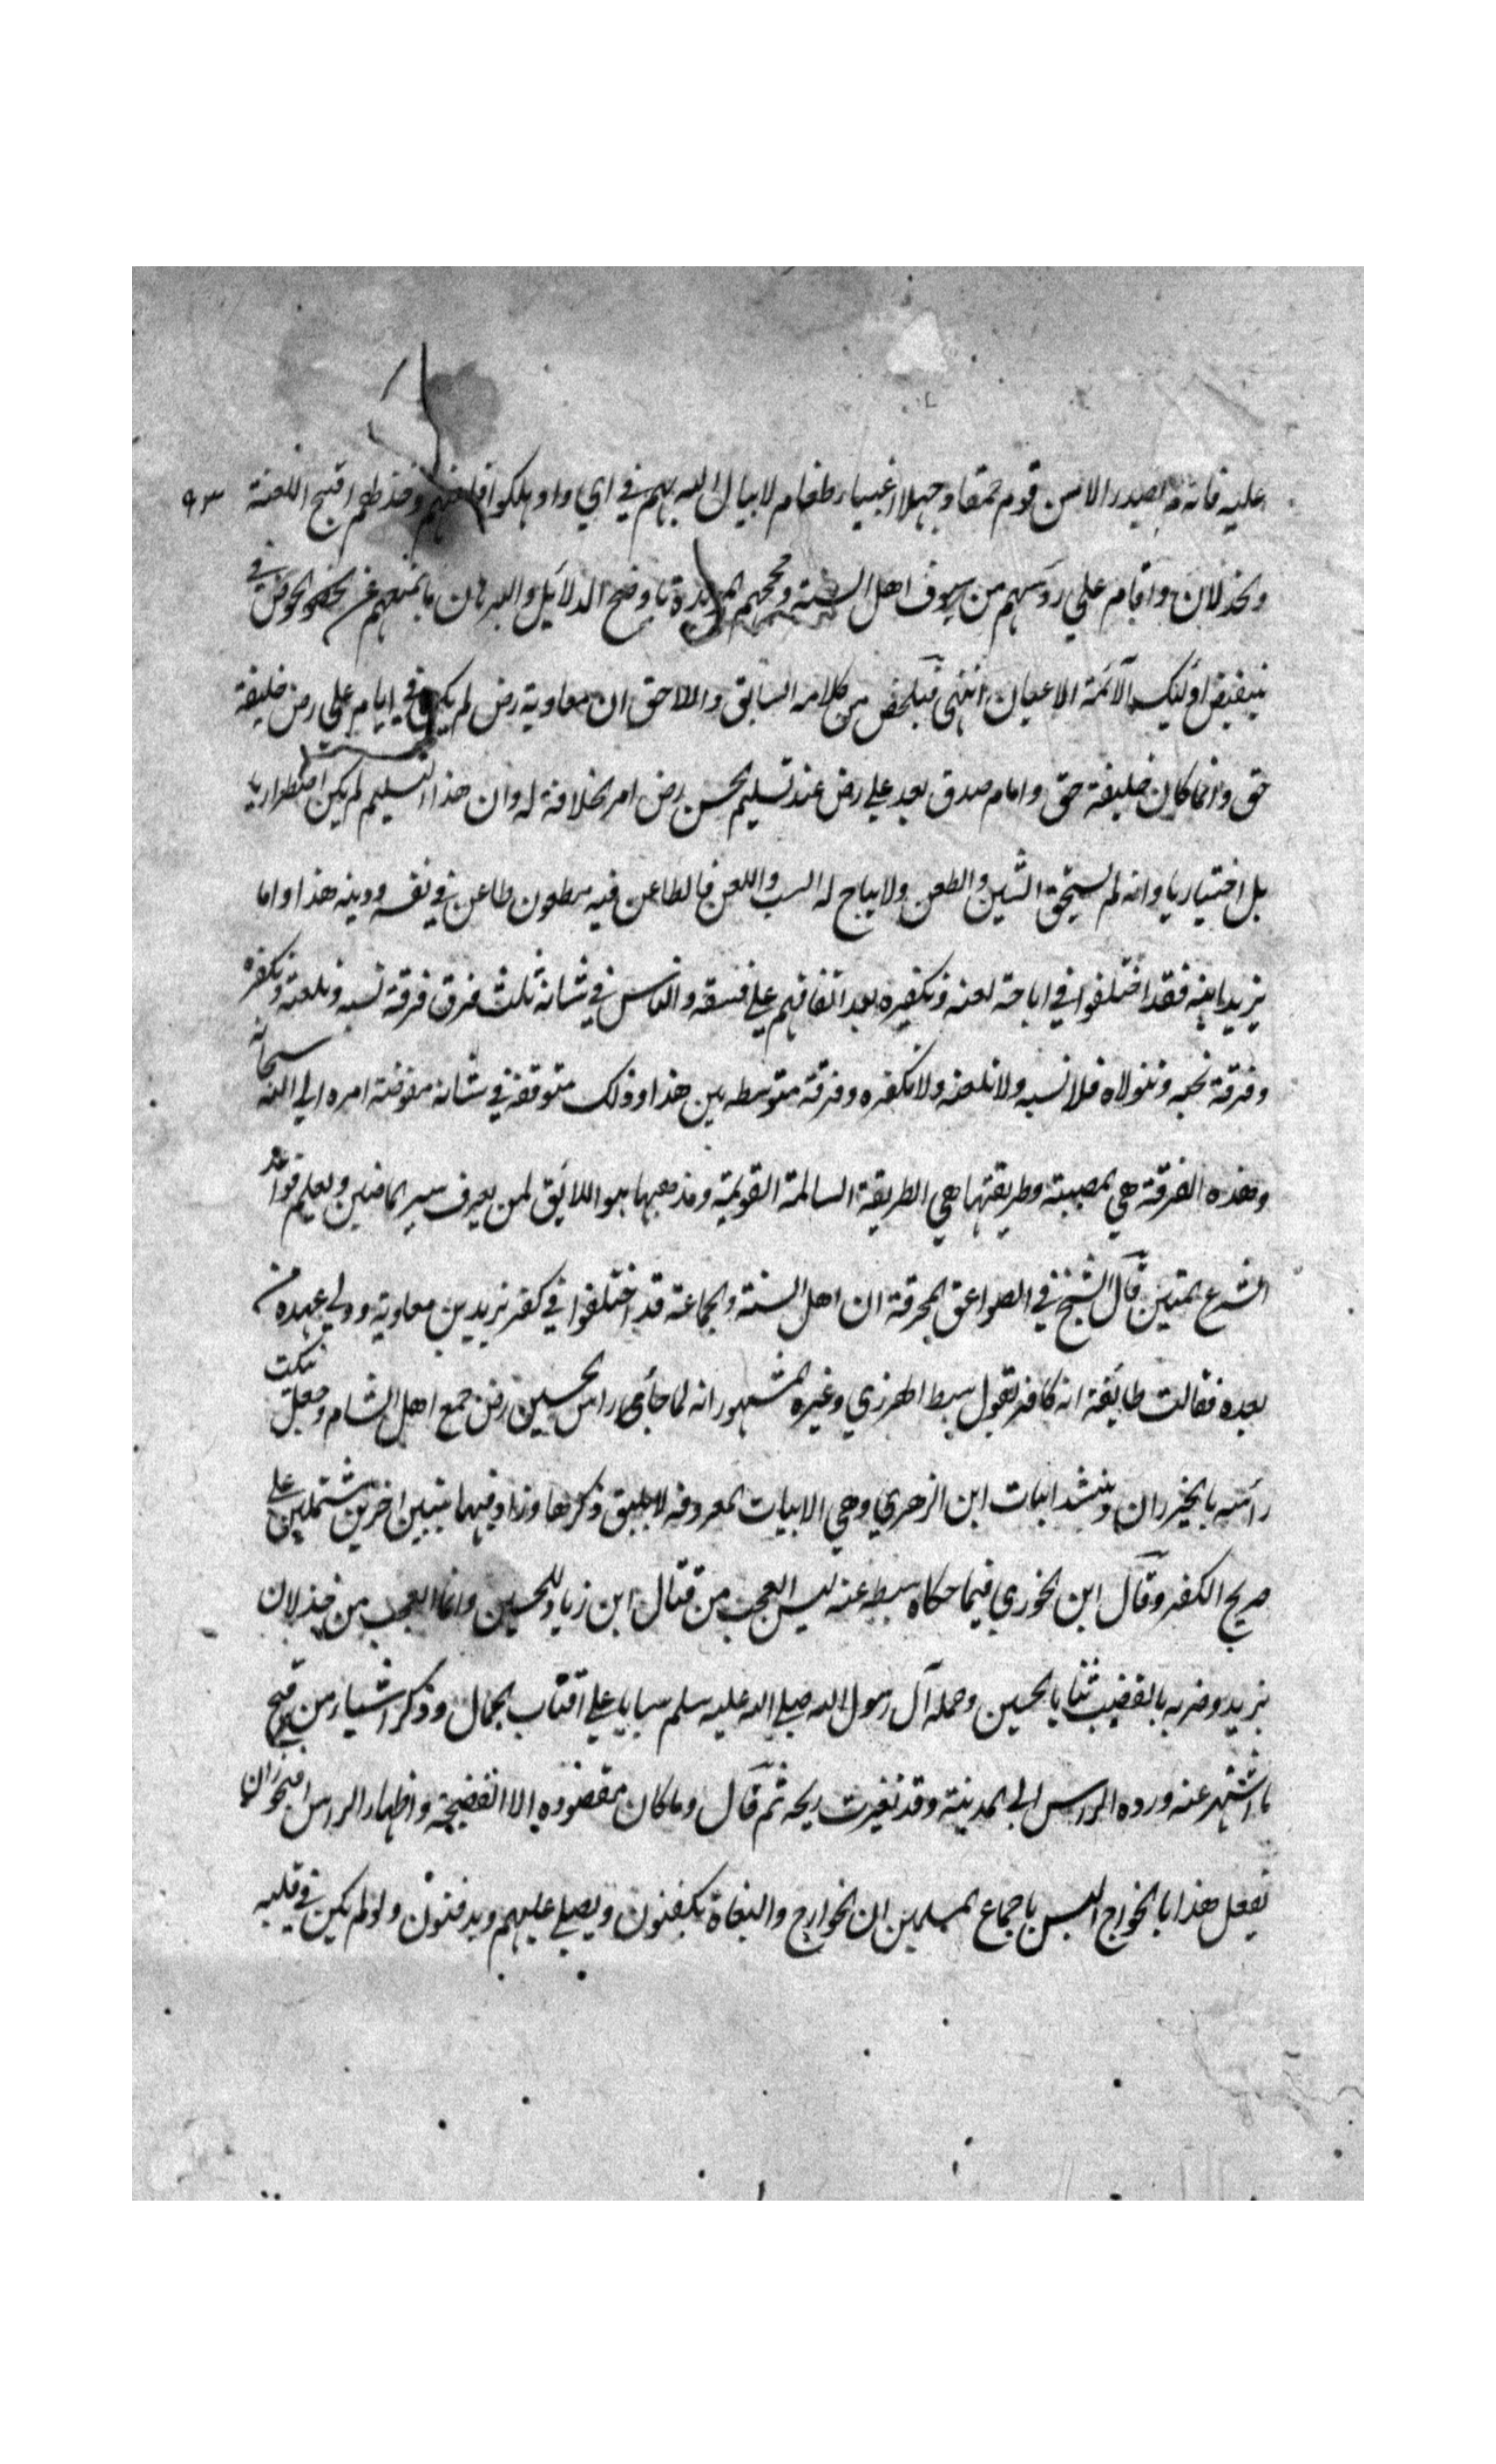 عليه فانه لم يصدر الا من قوم حمقا وجهلا اغبيا طغام لا يبالى الله بهم في اي واد هلكوا فلعنهم وخذلهم اقبح اللعنة ٩٣
والخذلان واقام على روسهم من سيوف اهل السنة وحججهم المويدة باوضح الدلائل والبرهان ما يمنعهم عن الخوض في
تنقيص اوليك الائمة الاعيان انتهى فتلخص من كلامه السابق واللاحق ان معاوية رض لم يكن في ايام علي رض خليفة
حق وانما كان خليفة حق وامام صدق بعد علي رض عند تسليم الحسن رض امر الخلافة له وان هذا التسليم لم يكن اضطراريا
بل اختياريا وانه لم يستحق الشين والطعن ولا يباح له السب واللعن فالطاعن فيه مطعون طاعن في نفسه ودينه هذا واما
يزيد ابنه فقد اختلفوا في اباحة لعنه وتكفيره بعد اتفاقهم على فسقه والناس في شانه ثلث فرق فرقة تسبه وتلعنه وتكفره
وفرقة تحبه وتتولاه فلا تسبه ولا تلعنه ولا تكفره وفرقة متوسطه بين هذا وذلك متوقفة في شانه مفوضة امره الى الله سبحانه
وهذه الفرقة هي المصيبة وطريقتها هي الطريقة السالمة القويمة ومذهبها هو اللائق لمن يعرف سير الماضين ويعلم قواعد
الشرع المتين قال الشيخ في الصواعق المحرقة ان اهل السنة والجماعة قد اختلفوا في كفر يزيد بن معاوية وولي عهده من
بعده فقالت طايفة انه كافر لقول سبط الجوزي وغيره المشهور انه لما جاي راس الحسين رض جمع اهل الشام وجعل ينكت
راسه بالخيزران وينشد ابيات ابن الزهري وهي الابيات المعروفه لا يليق ذكرها وزاد فيهما بيتين اخرين مشتملين على
صريح الكفر وقال ابن الجوزي فيما حكاه سبطه عنه ليس العجب من قتال ابن زياد للحسين وانما العجب من خذلان
يزيد وضربه بالقضيب ثنايا الحسين وحمله آل رسول الله صلى الله عليه سلم سبايا على اقتاب الجمال وذكر اشيا من قبيح
ما اشتهر عنه ورده الراس الى المدينة وقد تغيرت ريحه ثم قال وما كان مقصوده الا الفضيحة واظهار الراس افيجوز ان
يفعل هذا بالخوارج اليس باجماع المسلمين ان الخوارج والبغاة يكفنون ويصلى عليهم ويدفنون ولو لم يكن في قلبه